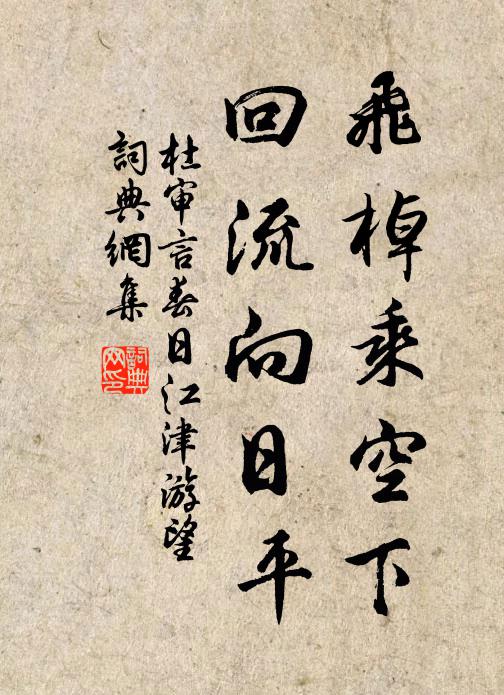 飛棹乘空下
回流向日平
杜审言春日江津游望
詞典網集
詞典網印